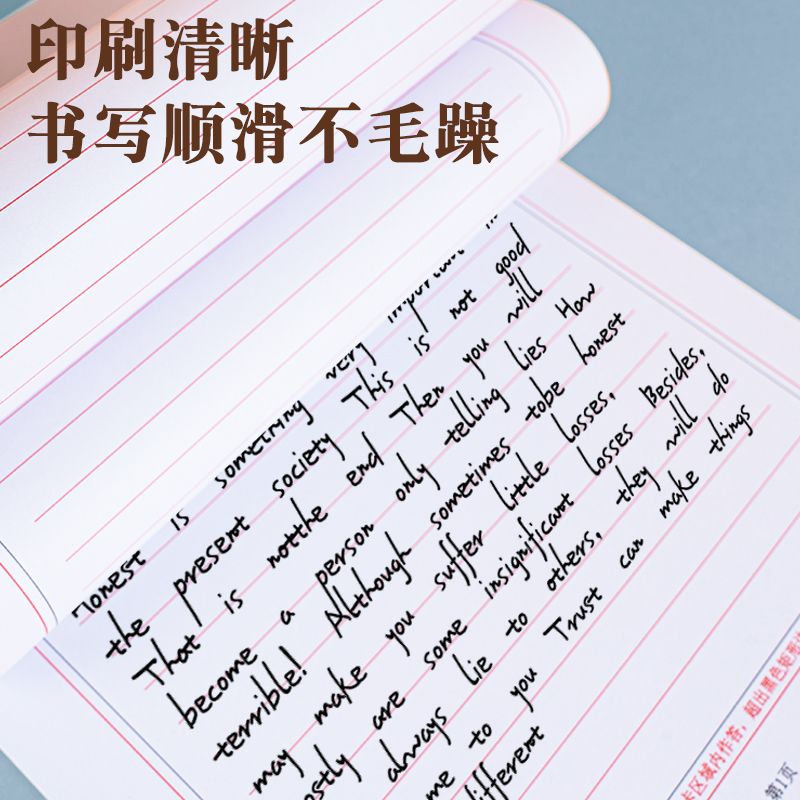 印刷清晰
书写顺滑不毛躁
Honest is something very important in
the present society This is not good
That is notthe end Then you will
become a person only telling lies How
terrible! Although sometimes tobe honest
may make you suffer little losses,
are some insignificant losses Besides,
always lie to others, they will do
to you Trust can make things
different
区域内作答，超出黑色矩形
第1页